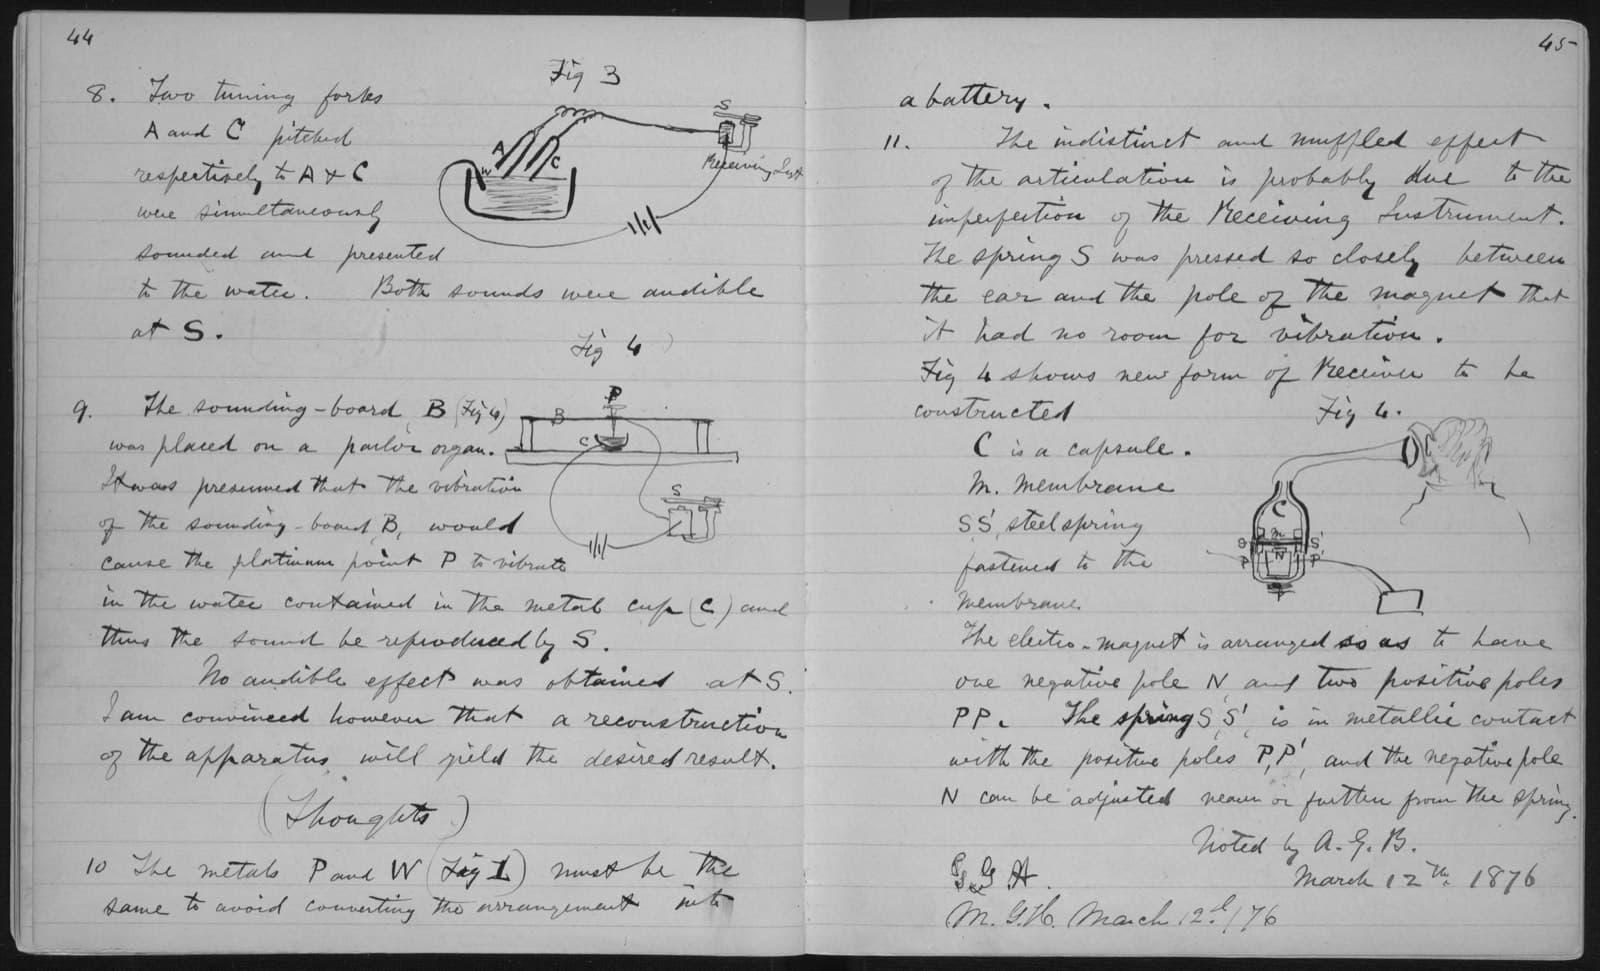 44
Fig 3
8. Two tuning forks
A and C pitched
respectively to A & C
were simultaneously
sounded and presented
to the water. Both sounds were audible
at S.
A
C
W
S
Receiving Inst
Fig 4
9. The sounding-board B (Fig 4)
was placed on a parlor organ.
It was presumed that the vibration
of the sounding-board, B, would
cause the platinum point P to vibrate
in the water contained in the metal cup (C) and
thus the sound be reproduced by S.
P
B
C
S
No audible effect was obtained at S.
I am convinced however that a reconstruction
of the apparatus will yield the desired result.
(Thoughts)
10 The metals P and W (Fig 1) must be the
same to avoid converting the arrangement into
45
a battery.
11. The indistinct and muffled effect
of the articulation is probably due to the
imperfection of the Receiving Instrument.
The spring S was pressed so closely between
the ear and the pole of the magnet that
it had no room for vibration.
Fig 4 shows new form of Receiver to be
constructed
Fig 4.
C is a capsule.
M. Membrane
S S', steel spring
fastened to the
membrane.
C
m
S
S'
N
P
P'
The electro-magnet is arranged so as to have
one negative pole N, and two positive poles
P P. The spring S, S', is in metallic contact
with the positive poles P, P', and the negative pole
N can be adjusted nearer or further from the spring.
Noted by A. G. B.
March 12th. 1876
G. G. H.
M. G. H. March 12d./76